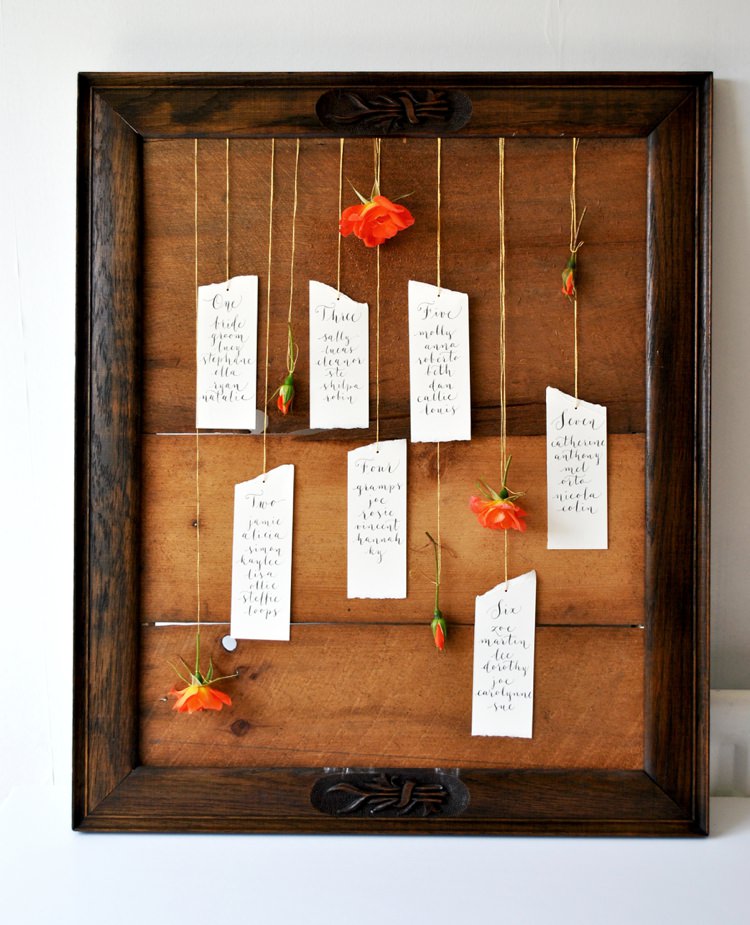 One
bride
groom
lucy
stephanie
ella
ryan
natalie
Two
jamie
alicia
simon
kaylee
lisa
ollie
steffie
loops
Three
sally
lucas
eleanor
ste
shilpa
robin
Four
gramps
joe
rosie
vincent
hannah
ky
Five
molly
anna
roberto
beth
dan
callie
Six
zoe
martin
lee
dorothy
joe
carolynne
sue
Seven
catherine
anthony
mel
orto
nicola
colin